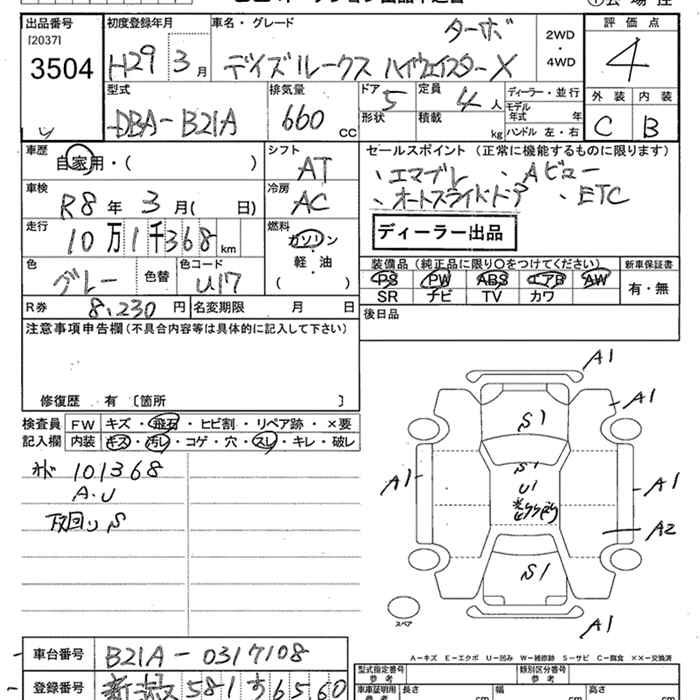 出品番号
[2037]
3504
初度登録年月
H29年 3月
車名・グレード
ターボ
デイズルークス ハイウェイスターX
2WD
・
4WD
評価点
4
型式
DBA-B21A
排気量
660 CC
ドア 5
形状
定員 4人
積載 kg
ディーラー・並行
モデル年式 年
ハンドル 左・右
外装 内装
C B
車歴
自家用・( )
シフト
AT
セールスポイント (正常に機能するものに限ります)
、エマブレ 、Aビュー
、オートスライドドア 、ETC
ディーラー出品
車検
R8年 3月( 日)
冷房
AC
走行
10万1千368km
燃料
ガソリン
・
軽・油
( )
色
グレー
色替
色コード
U17
装備品 (純正品に限り○をつけてください)
PS PW ABS エアB AW
SR ナビ TV カワ
新車保証書
有・無
R券 8,230円
名変期限 月 日
後日品
注意事項申告欄 (不具合内容等は具体的に記入して下さい)
修復歴 有 〔箇所 〕
検査員記入欄
FW キズ・飛石・ヒビ割・リペア跡・×要
内装 キズ・汚レ・コゲ・穴・スレ・キレ・破レ
101368
A.U
下回りS
A1
A1
S1
A1
S1
U1
A1
A2
S1
A1
スペア
A-キズ E-エクボ U-凹み W-補修跡 S-サビ C-腐食 XX-交換済
車台番号 B21A-0317108
登録番号 581 す 6560
型式指定番号
参考
類別区分番号
参考
車庫証明用
参考
長さ cm
幅 cm
高さ cm